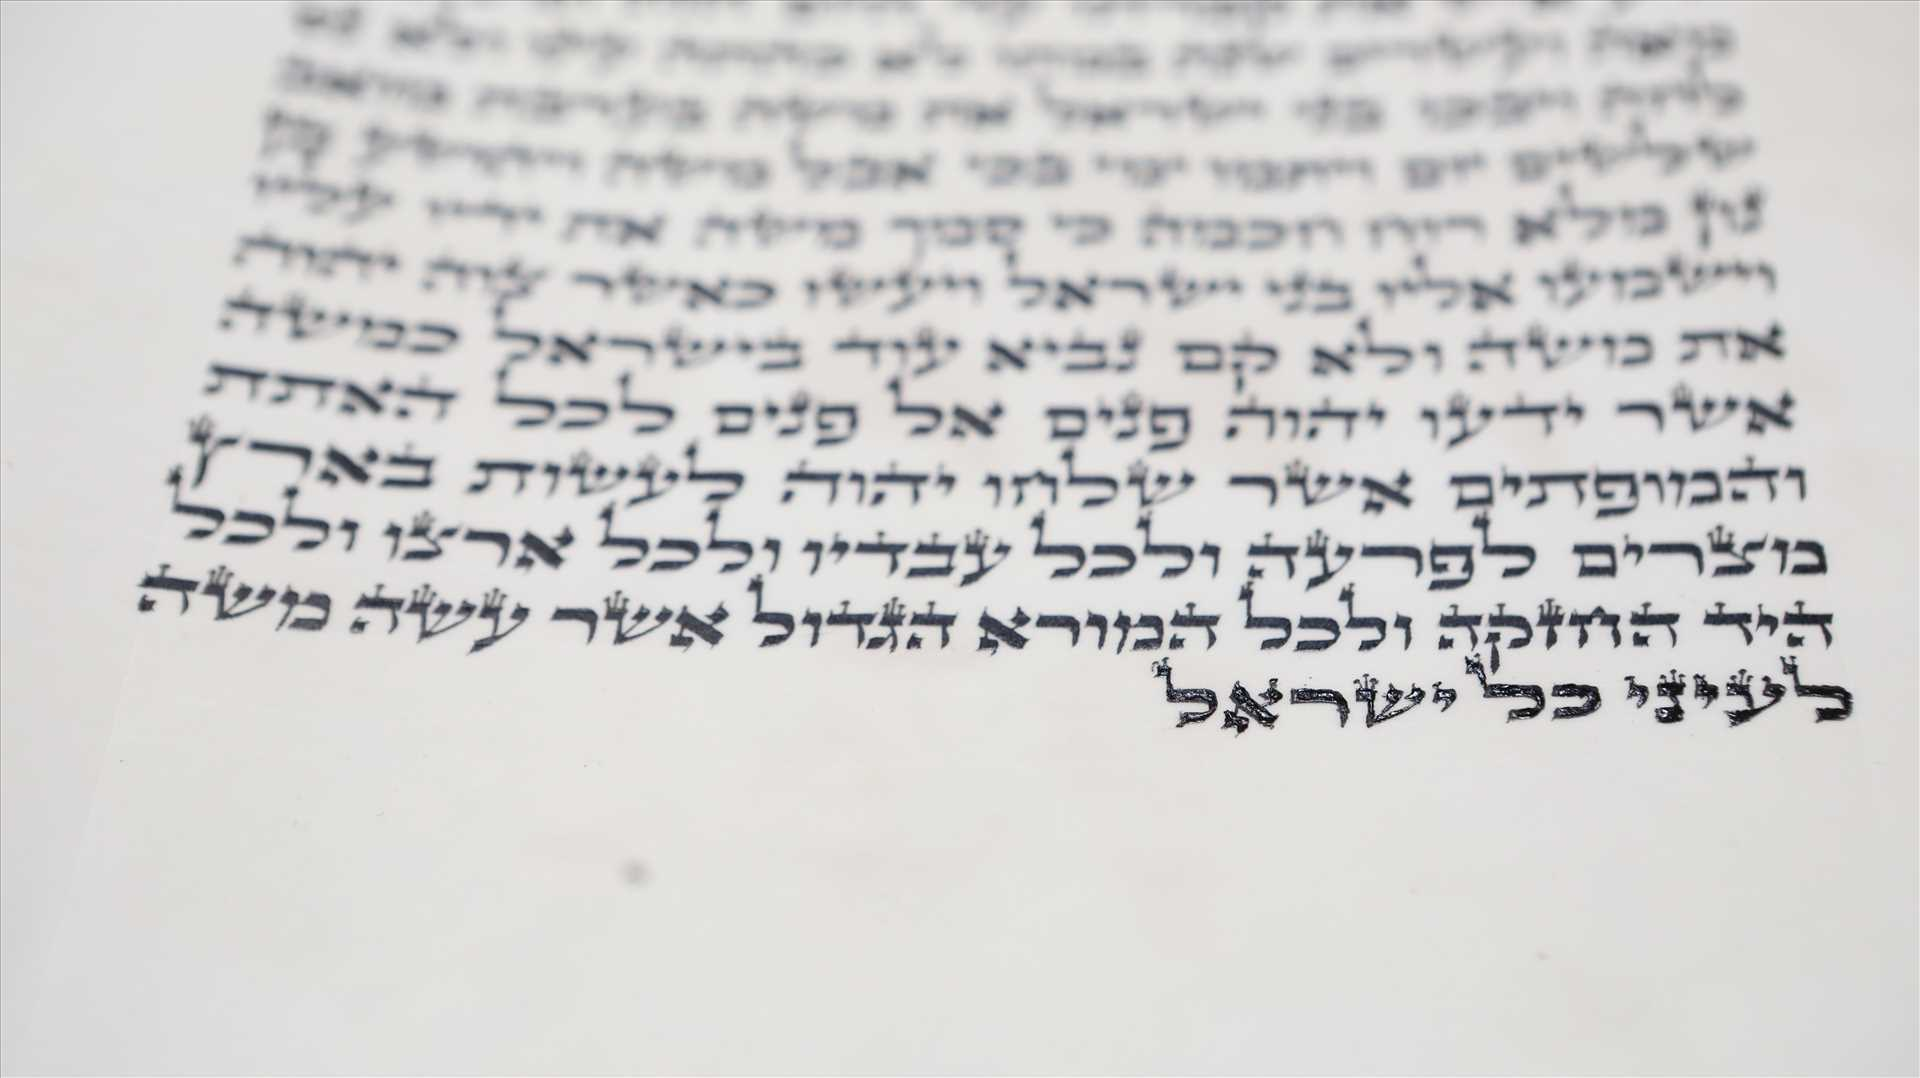 שלשים יום ויתמו ימי בכי אבל משה ויהושע בן
נון מלא רוח חכמה כי סמך משה את ידיו עליו
וישמעו אליו בני ישראל ויעשו כאשר צוה יהוה
את משה ולא קם נביא עוד בישראל כמשה
אשר ידעו יהוה פנים אל פנים לכל האתת
והמופתים אשר שלחו יהוה לעשות בארץ
מצרים לפרעה ולכל עבדיו ולכל ארצו ולכל
היד החזקה ולכל המורא הגדול אשר עשה משה
לעיני כל ישראל